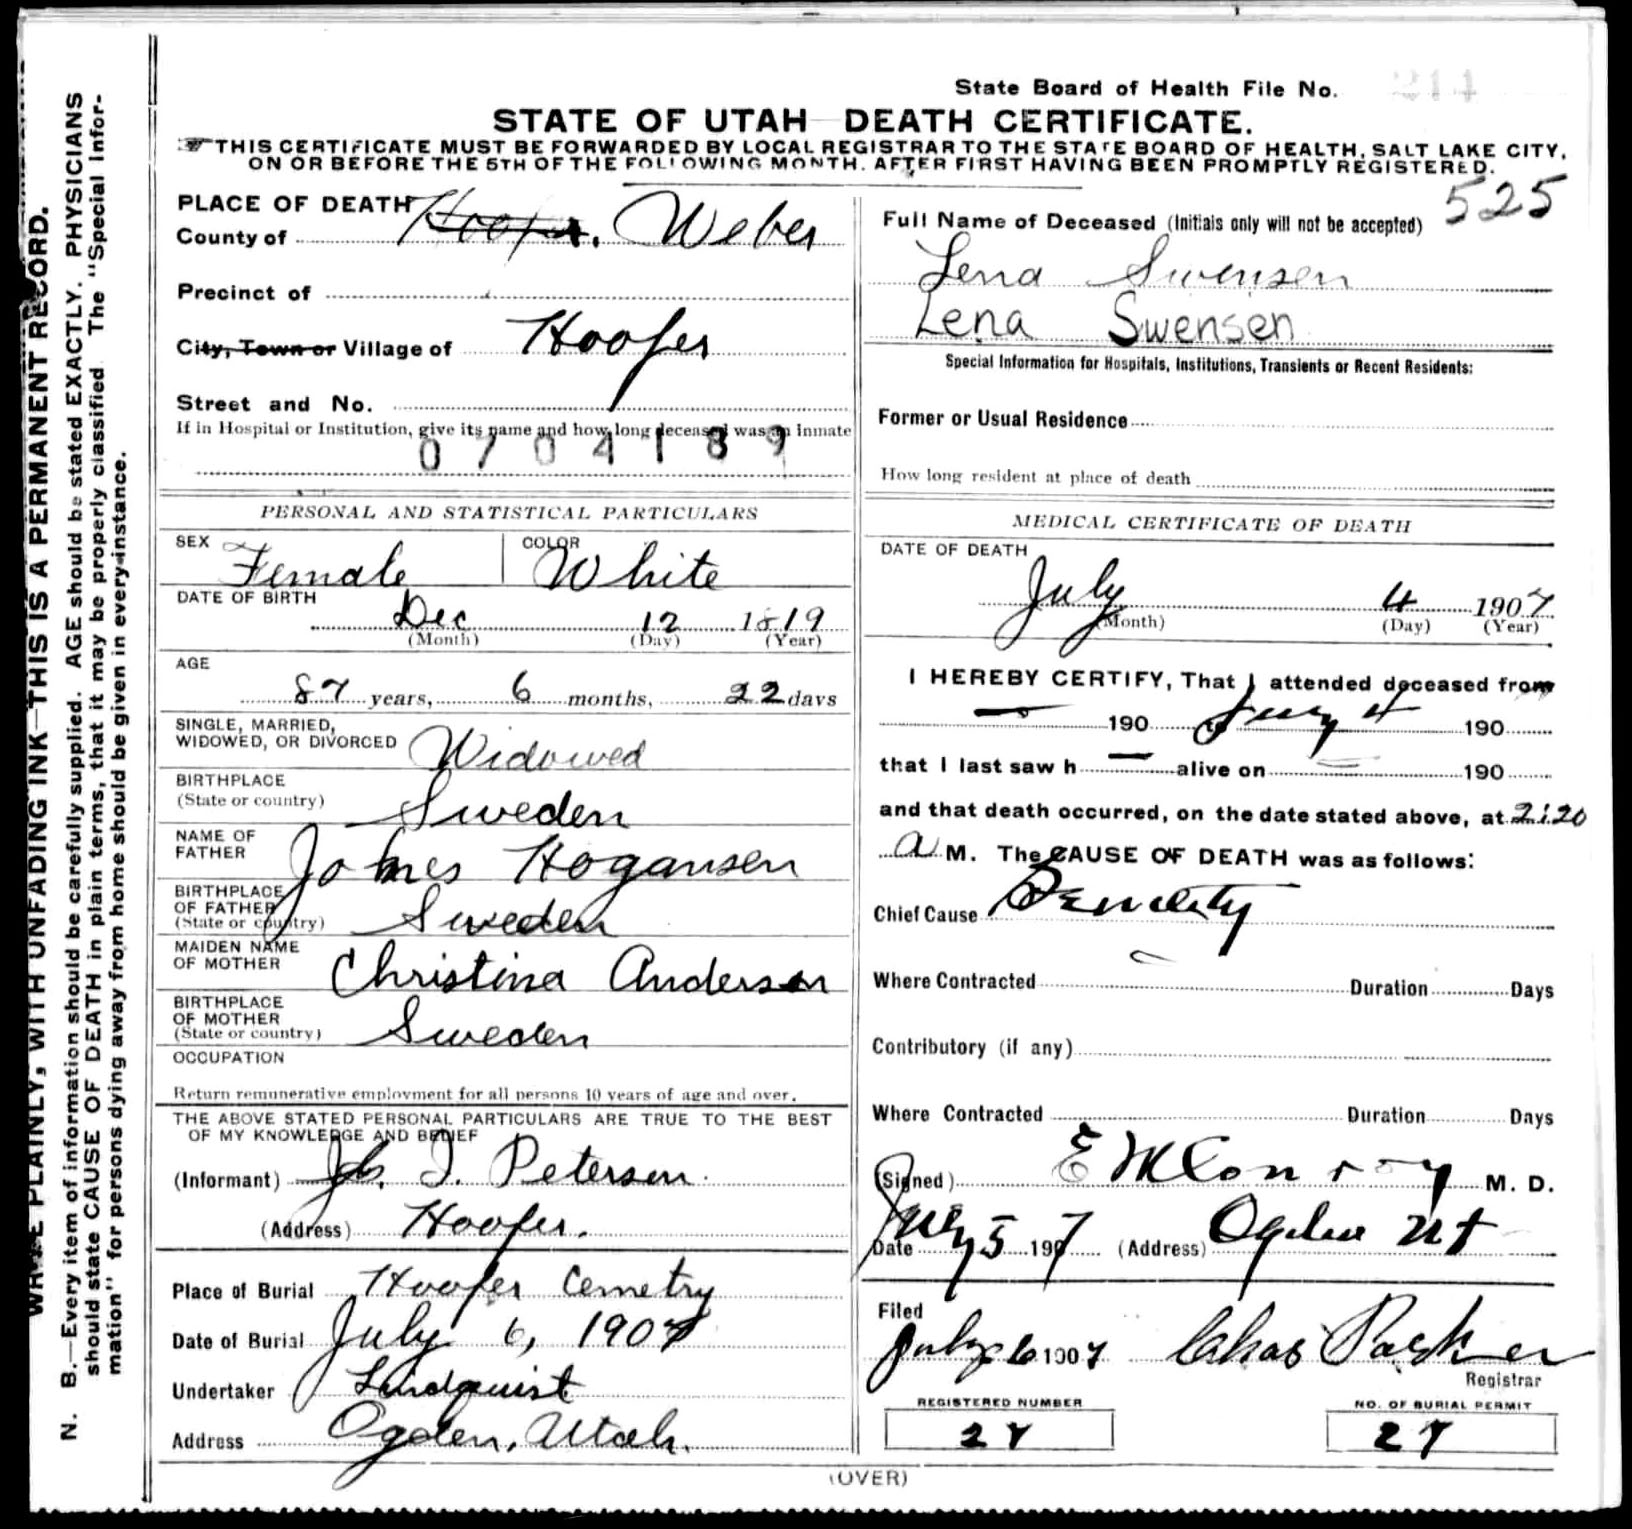 State Board of Health File No. 214
STATE OF UTAH DEATH CERTIFICATE.
THIS CERTIFICATE MUST BE FORWARDED BY LOCAL REGISTRAR TO THE STATE BOARD OF HEALTH, SALT LAKE CITY,
ON OR BEFORE THE 5TH OF THE FOLLOWING MONTH. AFTER FIRST HAVING BEEN PROMPTLY REGISTERED.
WRITE PLAINLY, WITH UNFADING INK—THIS IS A PERMANENT RECORD.
N. B.—Every item of information should be carefully supplied. AGE should be stated EXACTLY. PHYSICIANS
should state CAUSE OF DEATH in plain terms, that it may be properly classified. The "Special Infor-
mation" for persons dying away from home should be given in every instance.
PLACE OF DEATH
County of Hooper. Weber
Precinct of
City, Town or Village of Hooper
Street and No.
If in Hospital or Institution, give its name and how long deceased was an inmate
0704189
PERSONAL AND STATISTICAL PARTICULARS
SEX Female COLOR White
DATE OF BIRTH
Dec 12 1819
(Month) (Day) (Year)
AGE
87 years, 6 months, 22 days
SINGLE, MARRIED,
WIDOWED, OR DIVORCED Widowed
BIRTHPLACE
(State or country) Sweden
NAME OF
FATHER Hogansen
BIRTHPLACE
OF FATHER
(State or country) Sweden
MAIDEN NAME
OF MOTHER Christina Anderson
BIRTHPLACE
OF MOTHER
(State or country) Sweden
OCCUPATION
Return remunerative employment for all persons 10 years of age and over.
THE ABOVE STATED PERSONAL PARTICULARS ARE TRUE TO THE BEST
OF MY KNOWLEDGE AND BELIEF
(Informant) J. Peterson
(Address) Hooper.
Place of Burial Hooper Cemetry
Date of Burial July 6, 1907
Undertaker Lindquist
Address Ogden, Utah.
525
Full Name of Deceased (Initials only will not be accepted)
Lena Swensen
Lena Swensen
Special Information for Hospitals, Institutions, Transients or Recent Residents:
Former or Usual Residence
How long resident at place of death
MEDICAL CERTIFICATE OF DEATH
DATE OF DEATH
July 4 1907
(Month) (Day) (Year)
I HEREBY CERTIFY, That I attended deceased from
190 July 4 190
that I last saw h alive on 190
and that death occurred, on the date stated above, at 2:20
a M. The CAUSE OF DEATH was as follows:
Chief Cause Senility
Where Contracted Duration Days
Contributory (if any)
Where Contracted Duration Days
(Signed) E M Conroy M. D.
Date July 5 1907 (Address) Ogden Ut
Filed
July 6 1907 Chas Parker
Registrar
REGISTERED NUMBER
27
NO. OF BURIAL PERMIT
27
(OVER)